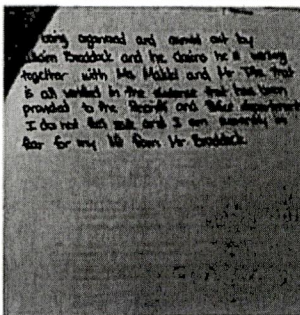 being organized and carried out by
William Braddock and he claims he is working
together with Ms. Makki and Mr. that
is all verified in the evidence that has been
provided to the Sheriffs and Police department
I do not feel safe and I am currently in
fear for my life from Mr. Braddock